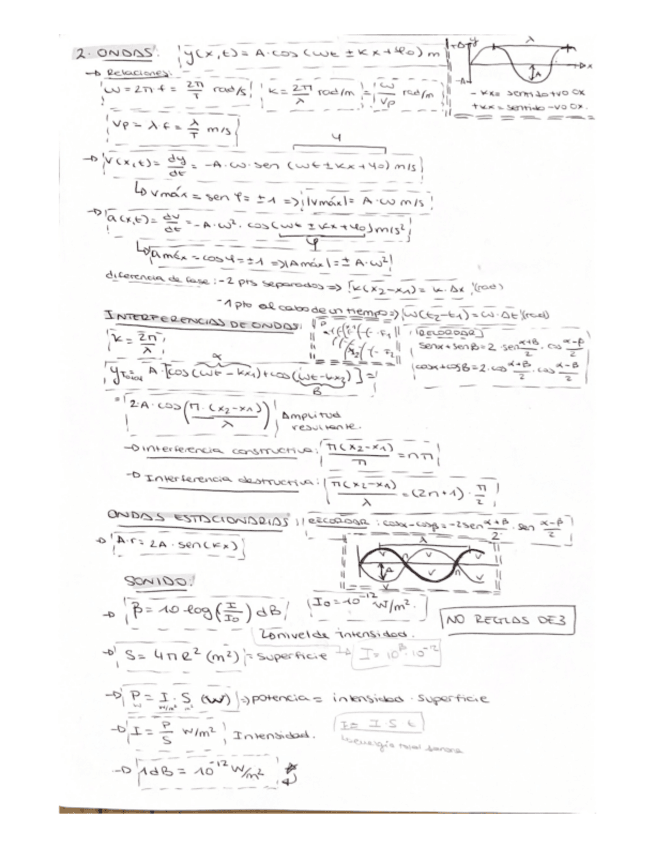 2. ONDAS: y(x,t) = A·cos(ωt ± kx + φ0) m
+A y λ
x
A
-A
- kx = sentido +vo Ox
+kx = sentido -vo Ox.
→ Relaciones:
ω = 2πf = 2π/T rad/s k = 2π/λ rad/m = ω/vp rad/m
vp = λf = λ/T m/s
φ
→ v(x,t) = dy/dt = -A·ω·sen (ωt ± kx + φ0) m/s
↳ vmáx = sen φ = ±1 => |vmáx| = A·ω m/s
→ a(x,t) = dv/dt = -A·ω²·cos(ωt ± kx + φ0) m/s²
φ
↳ amáx = cos φ = ±1 => |Amáx| = ± A·ω²
diferencia de fase: - 2 ptos separados => k(x2-x1) = k·Δx (rad)
- 1 pto al cabo de un tiempo => ω(t2-t1) = ω·Δt (rad)
INTERFERENCIAS DE ONDAS:
P F1
x2 F2
RECORDAR
senα + senβ = 2·sen α+β/2 · cos α-β/2
cosα + cosβ = 2·cos α+β/2 · cos α-β/2
k = 2π/λ
α
yTotal = A·[cos(ωt - kx1) + cos(ωt - kx2)] =
β
= 2·A·cos(π·(x2-x1)/λ) Amplitud resultante.
→ Interferencia constructiva: π(x2-x1)/π = nπ
→ Interferencia destructiva: π(x2-x1)/λ = (2n+1)·π/2
ONDAS ESTACIONARIAS: RECORDAR: cosα - cosβ = -2sen α+β/2 · sen α-β/2
→ A·r = 2A·sen(kx)
λ
V V V
A n n
V V
SONIDO:
→ β = 10·log(I/I0) dB I0 = 10⁻¹² W/m².
NO REGLAS DE 3
↳ nivel de intensidad.
→ S = 4πR² (m²) = superficie → I = 10^β·10⁻¹²
→ P = I·S (W) => potencia = intensidad · superficie
W W/m² m²
→ I = P/S W/m² Intensidad.
E = I·S·t
↳ energía
→ 1dB = 10⁻¹² W/m²